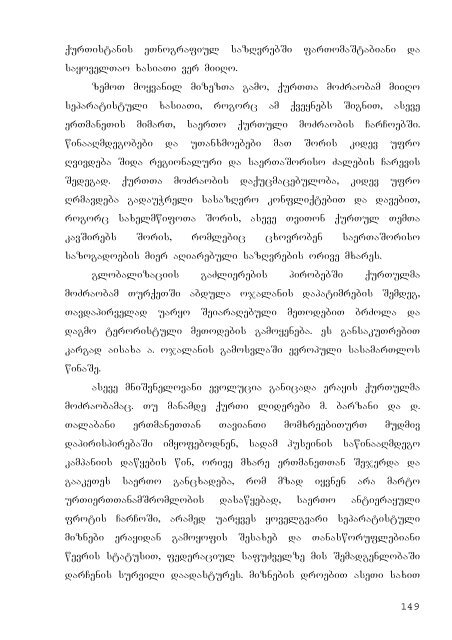 ქურთისტანის ეთნოგრაფიულ საზღვრებში ფართომაშტაბიანი და
საყოველთაო ხასიათი ვერ მიიღო.
ზემოთ მოყვანილ მიზეზთა გამო, ქურთთა მოძრაობამ მიიღო
სეპარატისტული ხასიათი, როგორც ამ ქვეყნებს შიგნით, ასევე
ერთმანეთის მიმართ, საერთო ქურთული მოძრაობის ჩარჩოებში.
წინააღმდეგობები და უთანხმოებები მათ შორის კიდევ უფრო
ღვივდება შიდა რეგიონალური და საერთაშორისო ძალების ჩარევის
შედეგად. ქურთთა მოძრაობის დაქუცმაცებულობა, კიდევ უფრო
ღრმავდება გადაუჭრელი სასაზღვრო კონფლიქტებით და დავებით,
როგორც სახელმწიფოთა შორის, ასევე თვითონ ქურთულ თემთა
კავშირებს შორის, რომლებიც ცხოვრობენ საერთაშორისო
საზოგადოების მიერ აღიარებული საზღვრების ორივე მხარეს.
გლობალიზაციის გაძლიერების პირობებში ქურთულმა
მოძრაობამ თურქეთში აბდულა ოჯალანის დაპატიმრების შემდეგ,
თავდაპირველად უარყო შეიარაღებული მეთოდებით ბრძოლა და
დაგმო ტერორისტული მეთოდების გამოყენება. ეს განსაკუთრებით
კარგად აისახა ა. ოჯალანის გამოსვლაში ევროპული სასამართლოს
წინაშე.
ასევე მნიშვნელოვანი ევოლუცია განიცადა ერაყის ქურთულმა
მოძრაობამაც. თუ მანამდე ქურთი ლიდერები მ. ბარზანი და დ.
თალაბანი ერთმანეთთან თავიანთი მომხრეებითურთ მუდმივ
დაპირისპირებაში იმყოფებოდნენ, სადამ ჰუსეინის საწინააღმდეგო
კამპანიის დაწყების წინ, ორივე მხარე ერთმანეთთან შეჯერდა და
გააკეთეს საერთო განცხადება, რომ მზად იყვნენ არა მარტო
ურთიერთთანამშრომლობის დასაწყებად, საერთო ანტიერაყული
ფროტის ჩარჩოში, არამედ უარყვეს ყოველგვარი სეპარატისტული
მიზნები ერაყიდან გამოყოფის შესახებ და თანასწორუფლებიანი
წევრის სტატუსით, ფედერაციულ საფუძველზე მის შემადგენლობაში
დარჩენის სურვილი დაადასტურეს. მიზნების დროებით ასეთი სახით
149